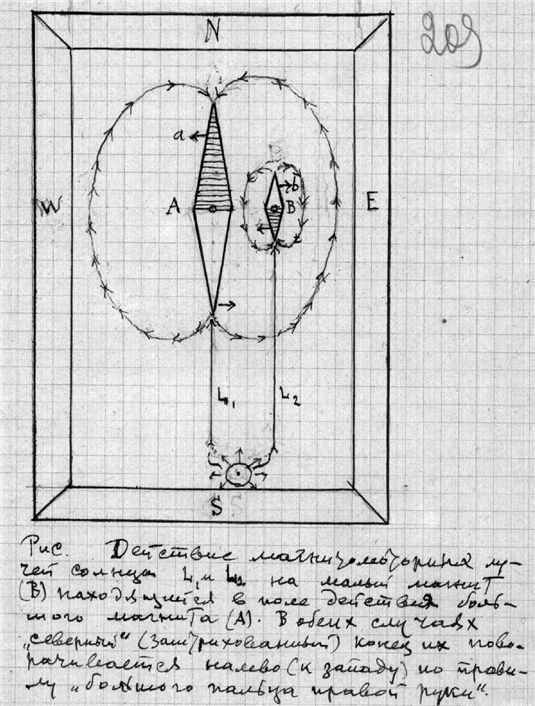 209
N
a
b
W A B E
L₁ L₂
S
Рис. Действие магнитомоторных лу-
чей солнца L₁ и L₂ на малый магнит
(В) находящийся в поле действия боль-
шого магнита (А). В обеих случаях
„северный“ (заштрихованный) конец их пово-
рачивается налево (к западу) по прави-
лу „большого пальца правой руки“.